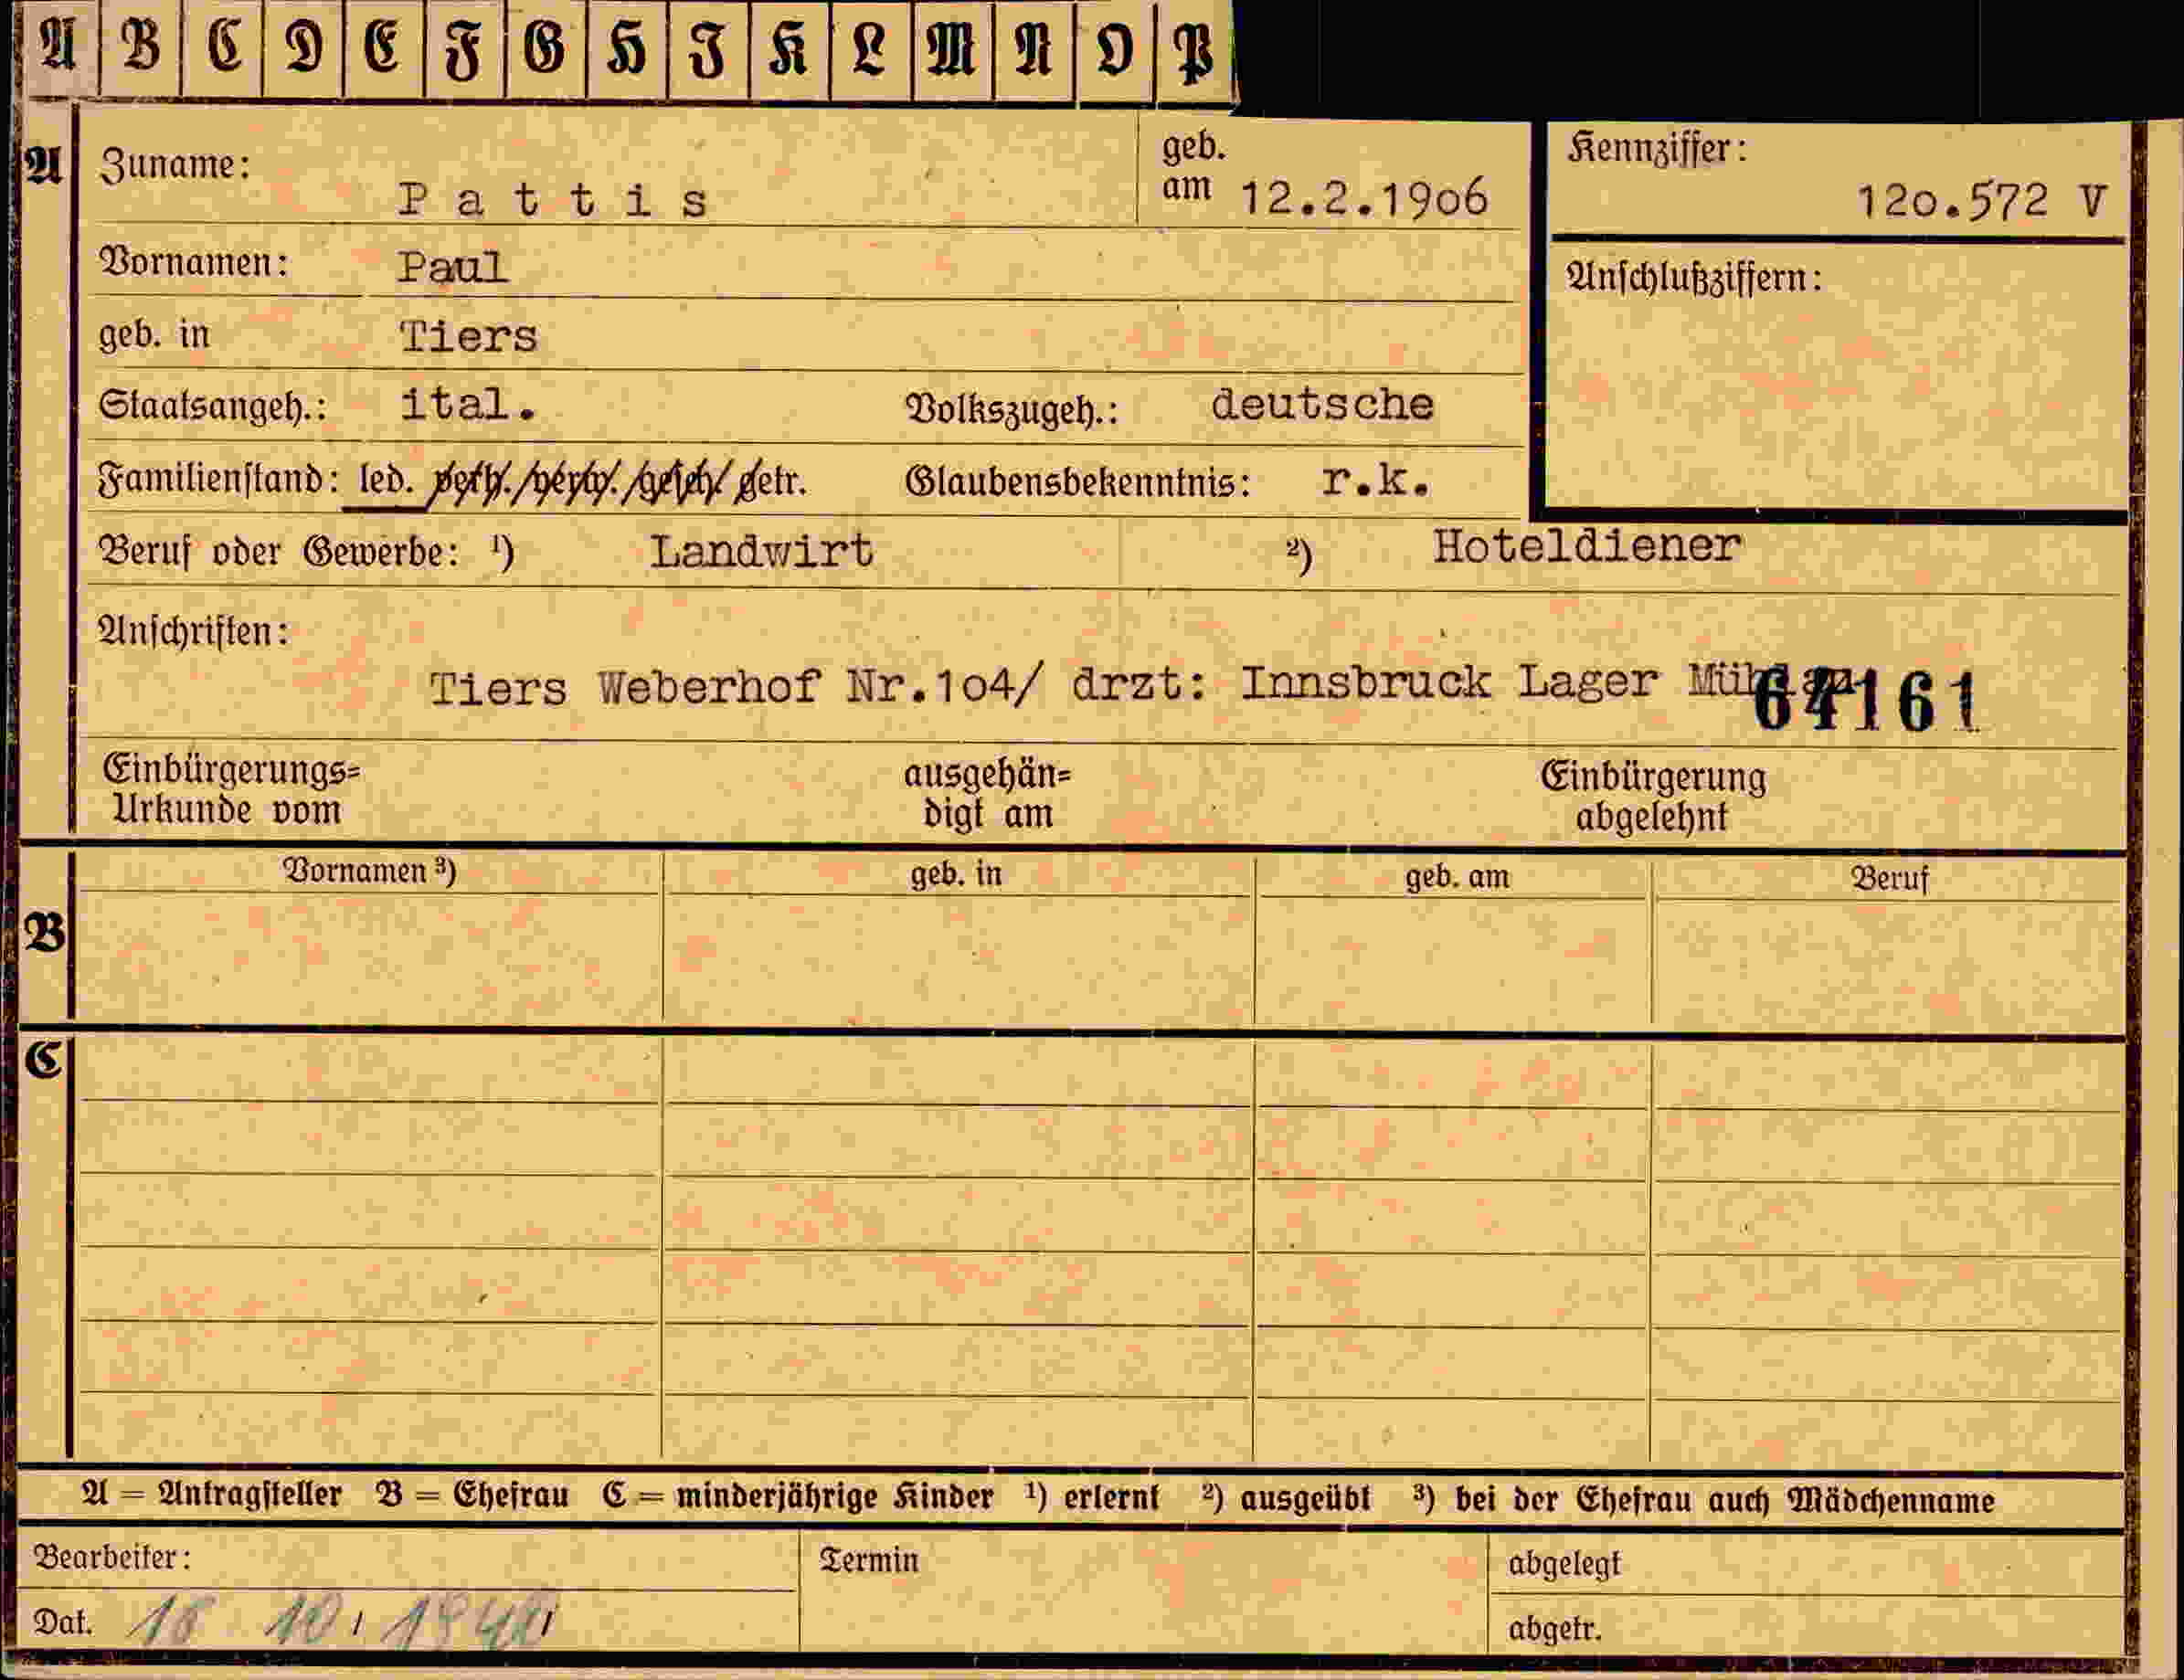 A B C D E F G H I K L M N O P
A Zuname: Pattis geb. am 12.2.1906 Kennziffer: 120.572 V
Vornamen: Paul Anschlußziffern:
geb. in Tiers
Staatsangeh.: ital. Volkszugeh.: deutsche
Familienstand: led. verh./verw./gesch/ getr. Glaubensbekenntnis: r.k.
Beruf oder Gewerbe: ¹) Landwirt ²) Hoteldiener
Anschriften:
Tiers Weberhof Nr.104/ drzt: Innsbruck Lager Mühlau
64161
Einbürgerungs=
Urkunde vom
ausgehän=
digt am
Einbürgerung
abgelehnt
Vornamen ³) geb. in geb. am Beruf
B
C
A = Antragsteller B = Ehefrau C = minderjährige Kinder ¹) erlernt ²) ausgeübt ³) bei der Ehefrau auch Mädchenname
Bearbeiter: Termin abgelegt
Dat. 10. 1940 abgetr.